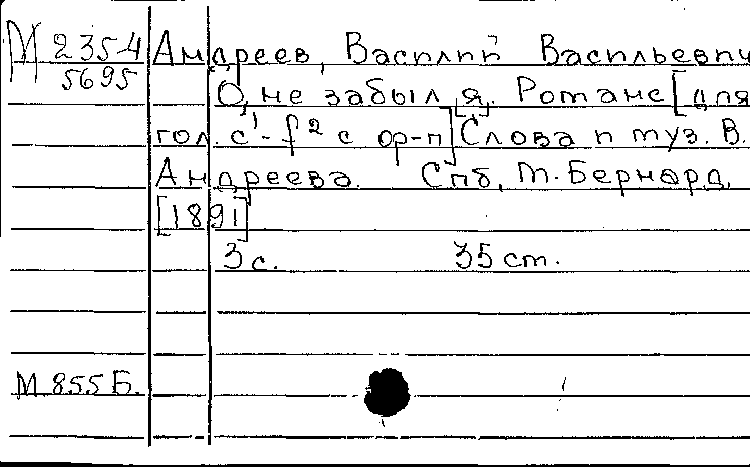 М 2354 Андреев, Василий Васильевич
5695
О, не забыл я. Романс [для
гол. c¹-f² с ф-п] Слова и муз. В.
Андреева. Спб, М. Бернард,
[1891]
3 с. 35 cm.
М.855Б.